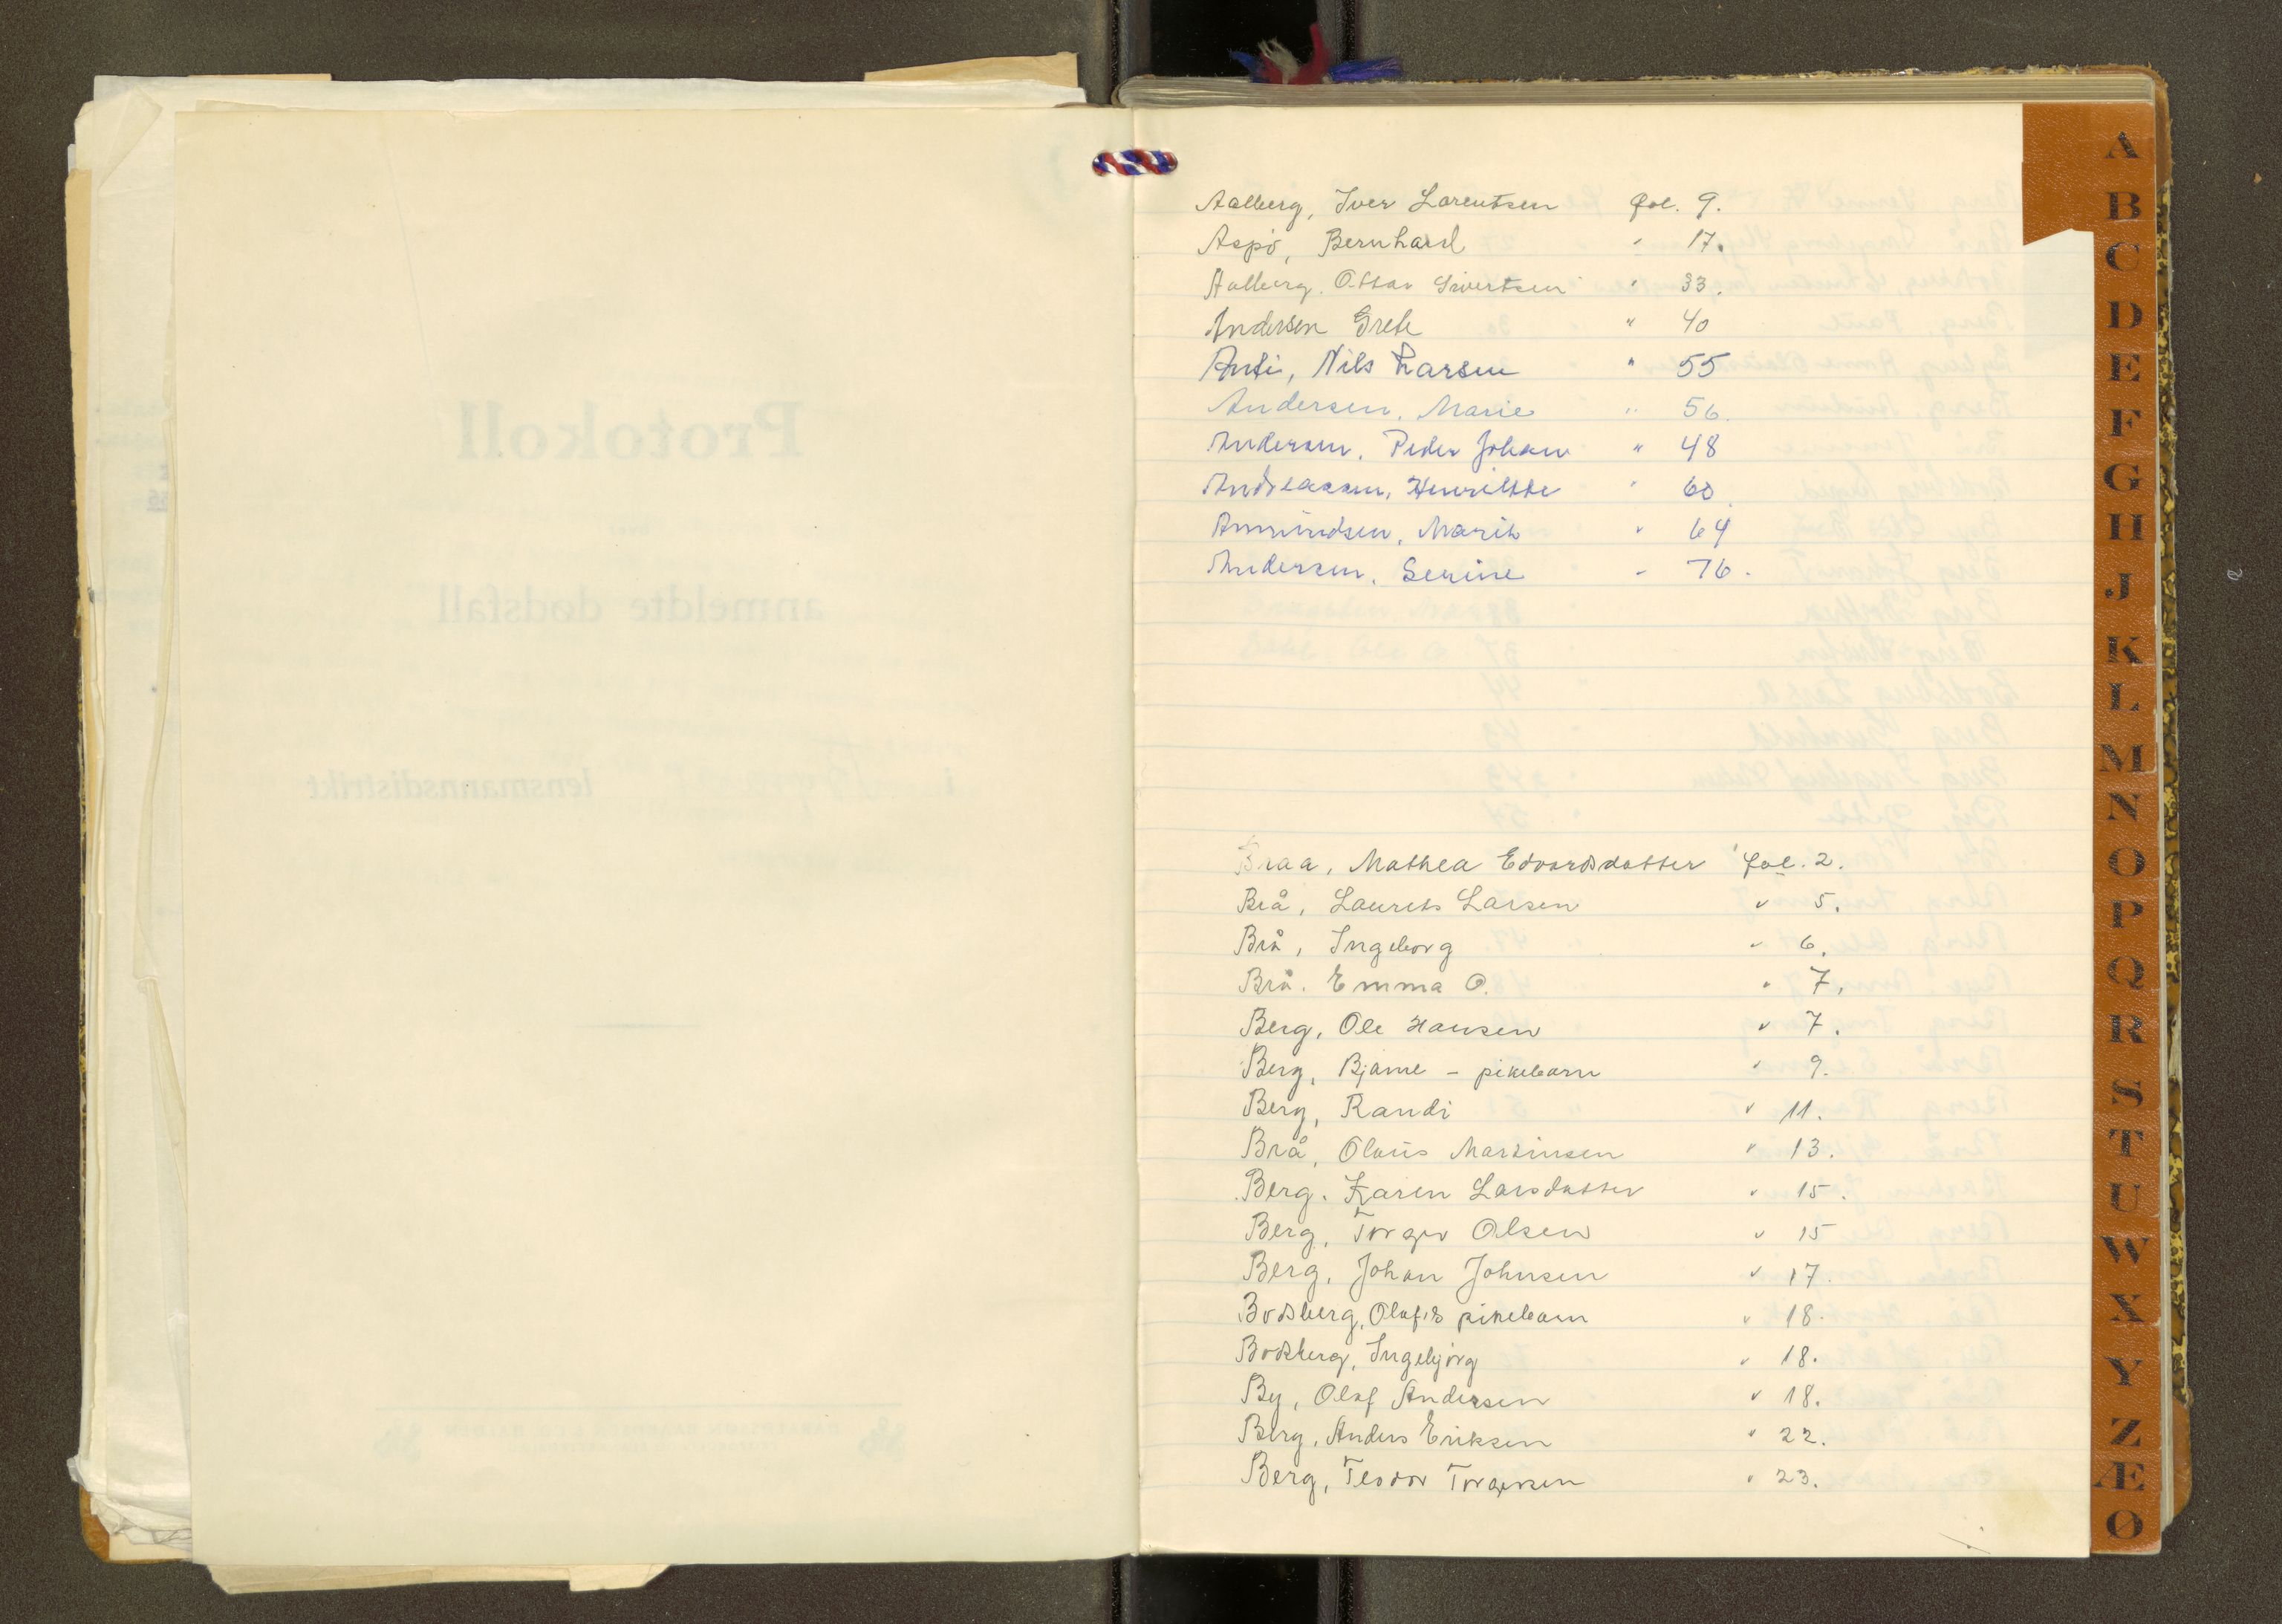 Aalberg, Iver Larentsen fol. 9.
Aspö, Bernhard " 17.
Aalberg. Ottar Sivertsen " 33.
Andersen Grete " 40
Anti, Nils Larsen " 55
Andersen, Marie " 56.
Andersen, Peder Johan " 48
Andreassen, Henriette " 60.
Amundsen, Marit " 64
Andersen, Serine " 76.
Braa, Mathea Edvardsdatter fol. 2.
Brå, Laurits Larsen " 5.
Brå, Ingeborg " 6.
Brå. Emma O. " 7.
Berg, Ole Hansen " 7.
Berg, Bjarne - pikebarn " 9.
Berg, Randi " 11.
Brå, Olaus Martinsen " 13.
Berg. Karen Larsdatter " 15.
Berg, Torger Olsen " 15
Berg, Johan Johnsen " 17.
Bodsberg, Olafs pikebarn " 18.
Bodsberg, Ingebjørg " 18.
By, Olaf Andersen " 18.
Berg, Anders Eriksen " 22.
Berg, Teodor Torgersen " 23.
A
B
C
D
E
F
G
H
J
K
L
M
N
O
P
Q
R
S
T
U
W
X
Y
Z
Æ
Ø